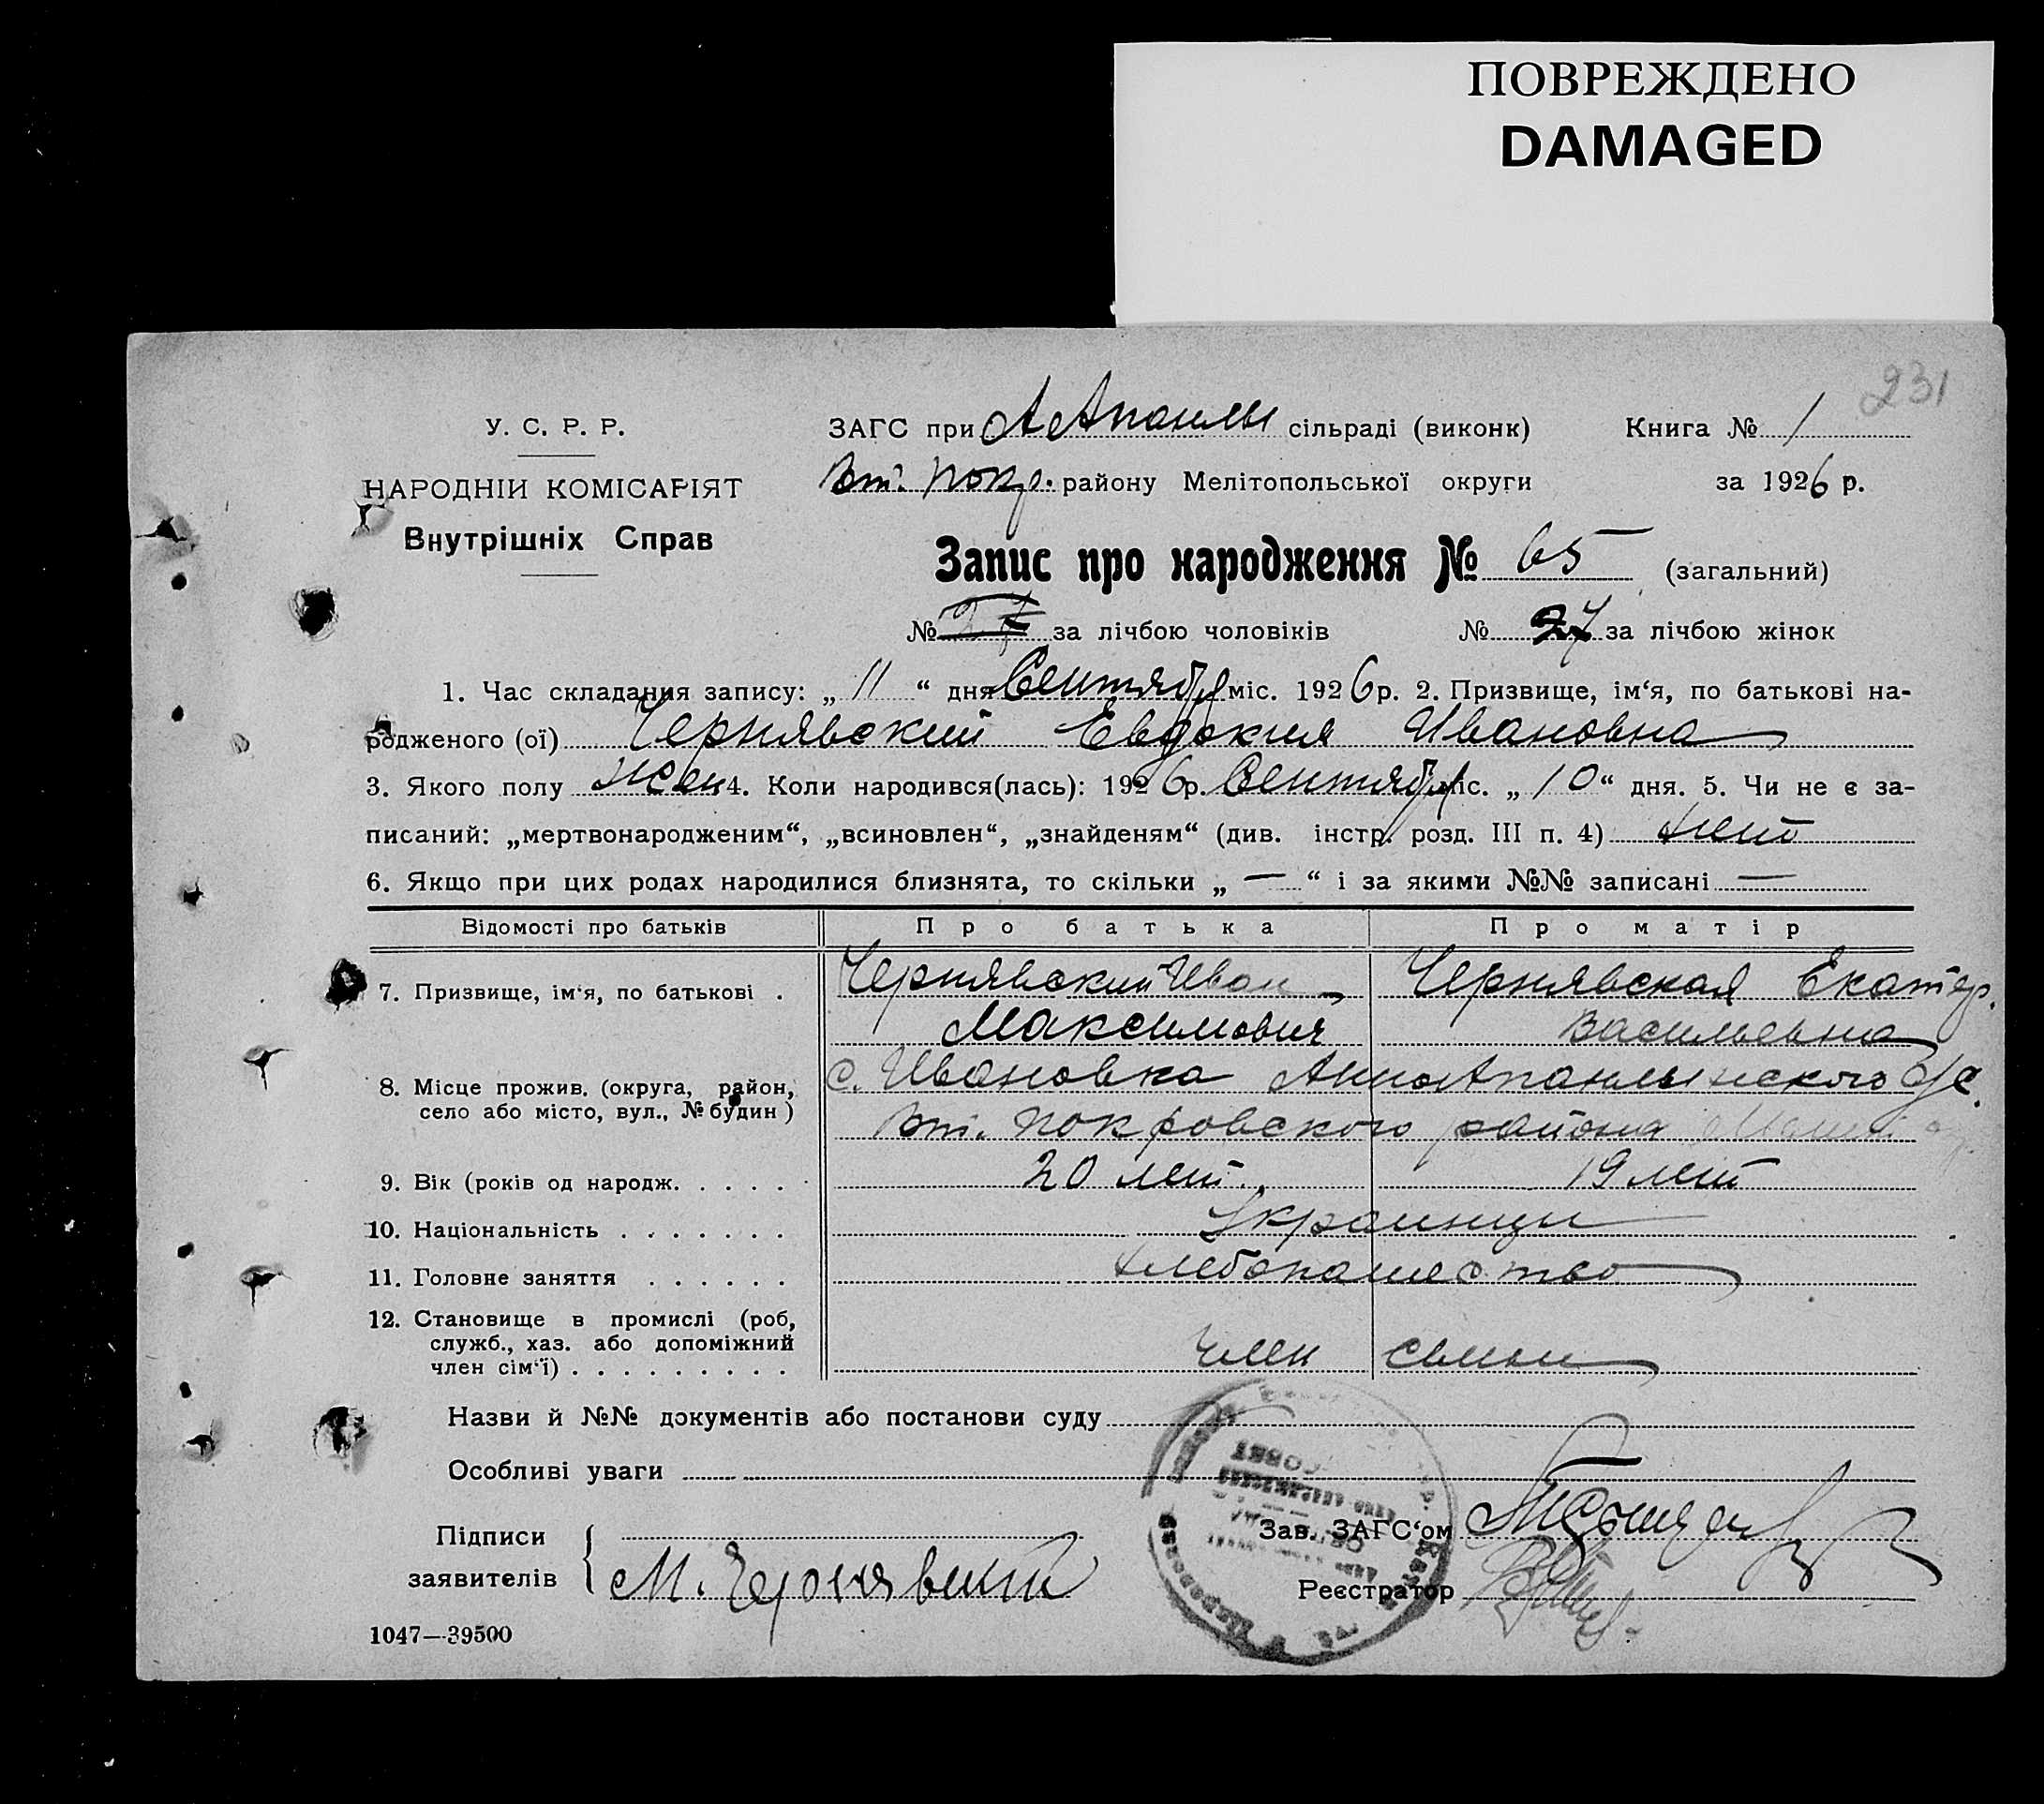 ПОВРЕЖДЕНО
DAMAGED
231
У. С. Р. Р.
НАРОДНІИ КОМІСАРІЯТ
Внутрішніх Справ
ЗАГС при А Апанлы сільраді (виконк) Книга № 1
Вт. Покр. району Мелітопольської округи за 1926 р.
Запис про народження № 65 (загальний)
№ 27 за лічбою чоловіків № 27 за лічбою жінок
1. Час складання запису: „ 11 “ дня Сентября міс. 1926 р. 2. Призвище, ім‘я, по батькові на-
родженого (ої) Чернявский Евдокия Ивановна
3. Якого полу жен 4. Коли народився(лась): 1926 р. Сентября міс. „ 10 “ дня. 5. Чи не є за-
писаний: „мертвонародженим“, „всиновлен“, „знайденям“ (див. інстр. розд. III п. 4) нет
6. Якщо при цих родах народилися близнята, то скільки „ — “ і за якими №№ записані —
Відомості про батьків Про батька Про матір
7. Призвище, ім‘я, по батькові . Чернявский Иван Чернявская Екатер.
Максимович Васильевна
8. Місце прожив. (округа, район, с. Ивановка с/с.
село або місто, вул., № будин) Вт. Покровского района
9. Вік (років од народж. . . . . . 20 лет. 19 лет
10. Національність . . . . . . . Украинцы
11. Головне заняття . . . . . . хлебопашество
12. Становище в промислі (роб,
служб., хаз. або допоміжний
член сім‘ї) . . . . . . . . . член семьи
Назви й №№ документів або постанови суду
Особливі уваги
Підписи
заявителів М. Чернявский
Зав. ЗАГС‘ом
Реєстратор
1047—39500